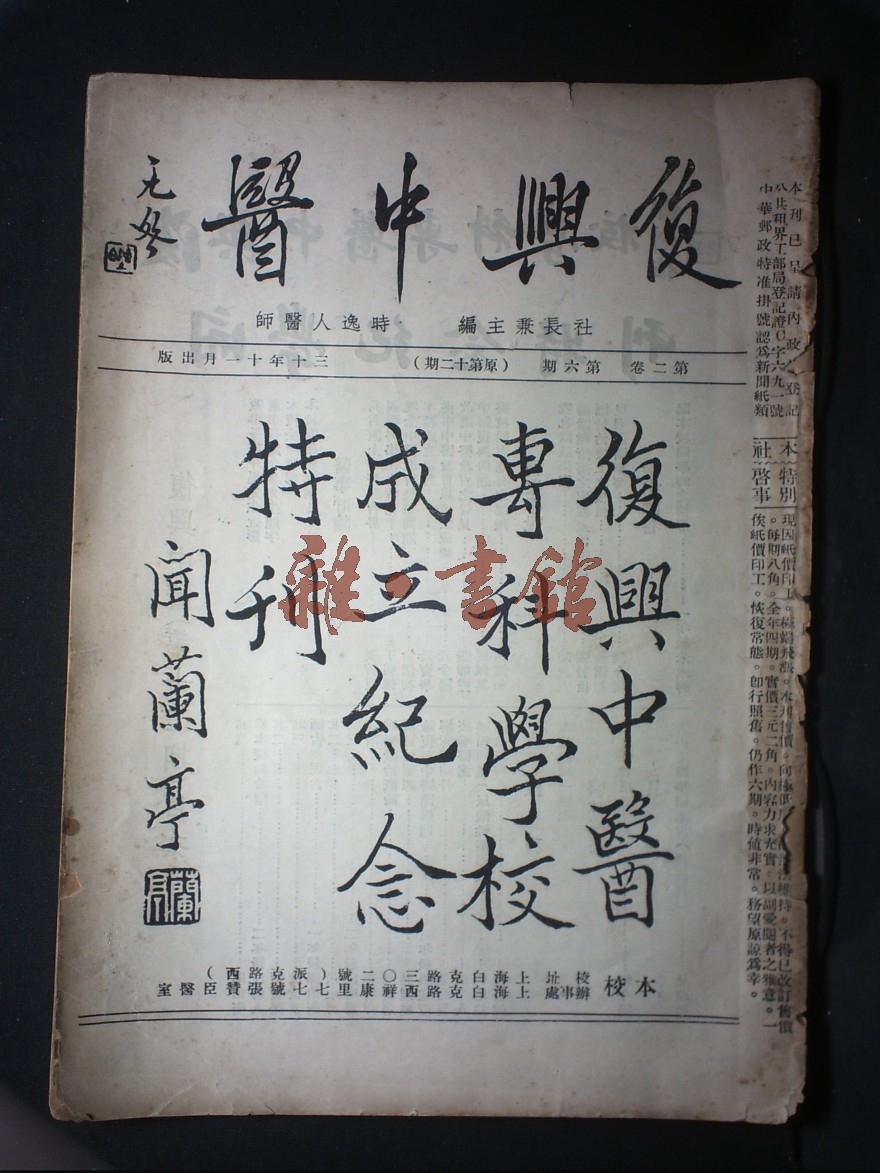 復興中醫
社長兼主編 時逸人醫師
第二卷 第六期 (原第十二期) 三十年十一月出版
復興中醫
專科學校
成立紀念
特刊
聞蘭亭
蘭亭
本校
校址 上海白克路三〇二號(派克路西
辦事處 上海白克路西祥康里七七號張贊臣醫室
本刊已呈請內政 登記
公共租界工部局登記證C字六九一號
中華郵政特准掛號認爲新聞紙類
本社特別啓事
現因紙價印工。 飛漲。本刊售價。向極低 維持。不得已改訂售價
。每期八角。全年四期。實價三元二角。內容力求充實。以副愛閱者之雅意。一
俟紙價印工。恢復常態。卽行照舊。仍作六期。時値非常。務望原諒爲幸。
雜·書館